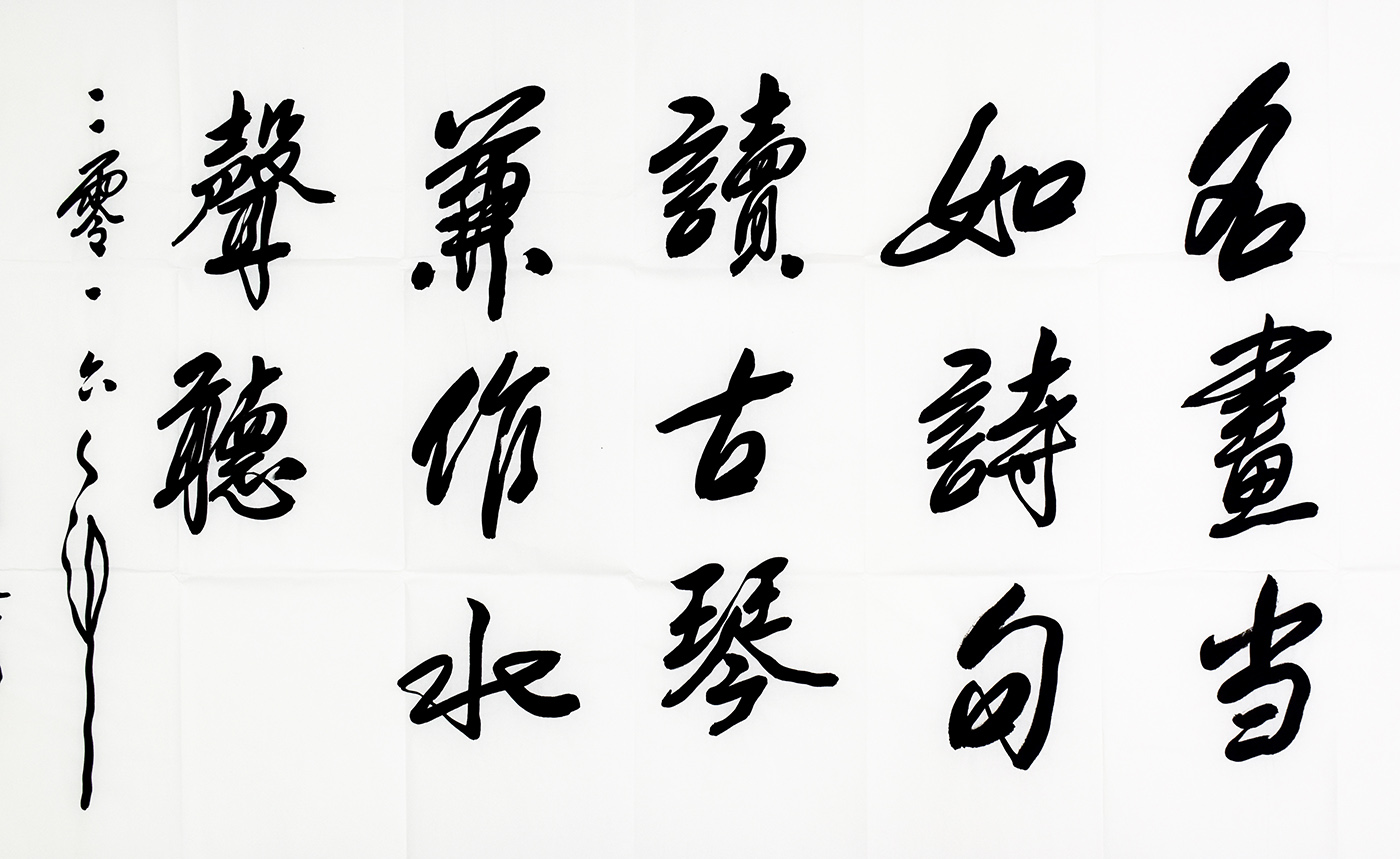 名畫当
如詩句
讀古琴
兼作水
聲聽
二零一六